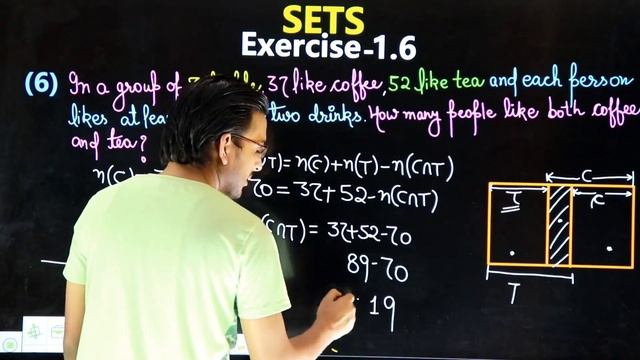 SETS
Exercise-1.6
(6) In a group of 37 like coffee, 52 like tea and each person
likes at two drinks. How many people like both coffee
and tea?
= n(C)+n(T)-n(C∩T)
70 = 37+52-n(C∩T)
= 37+52-70
89-70
19
C
T
C
T